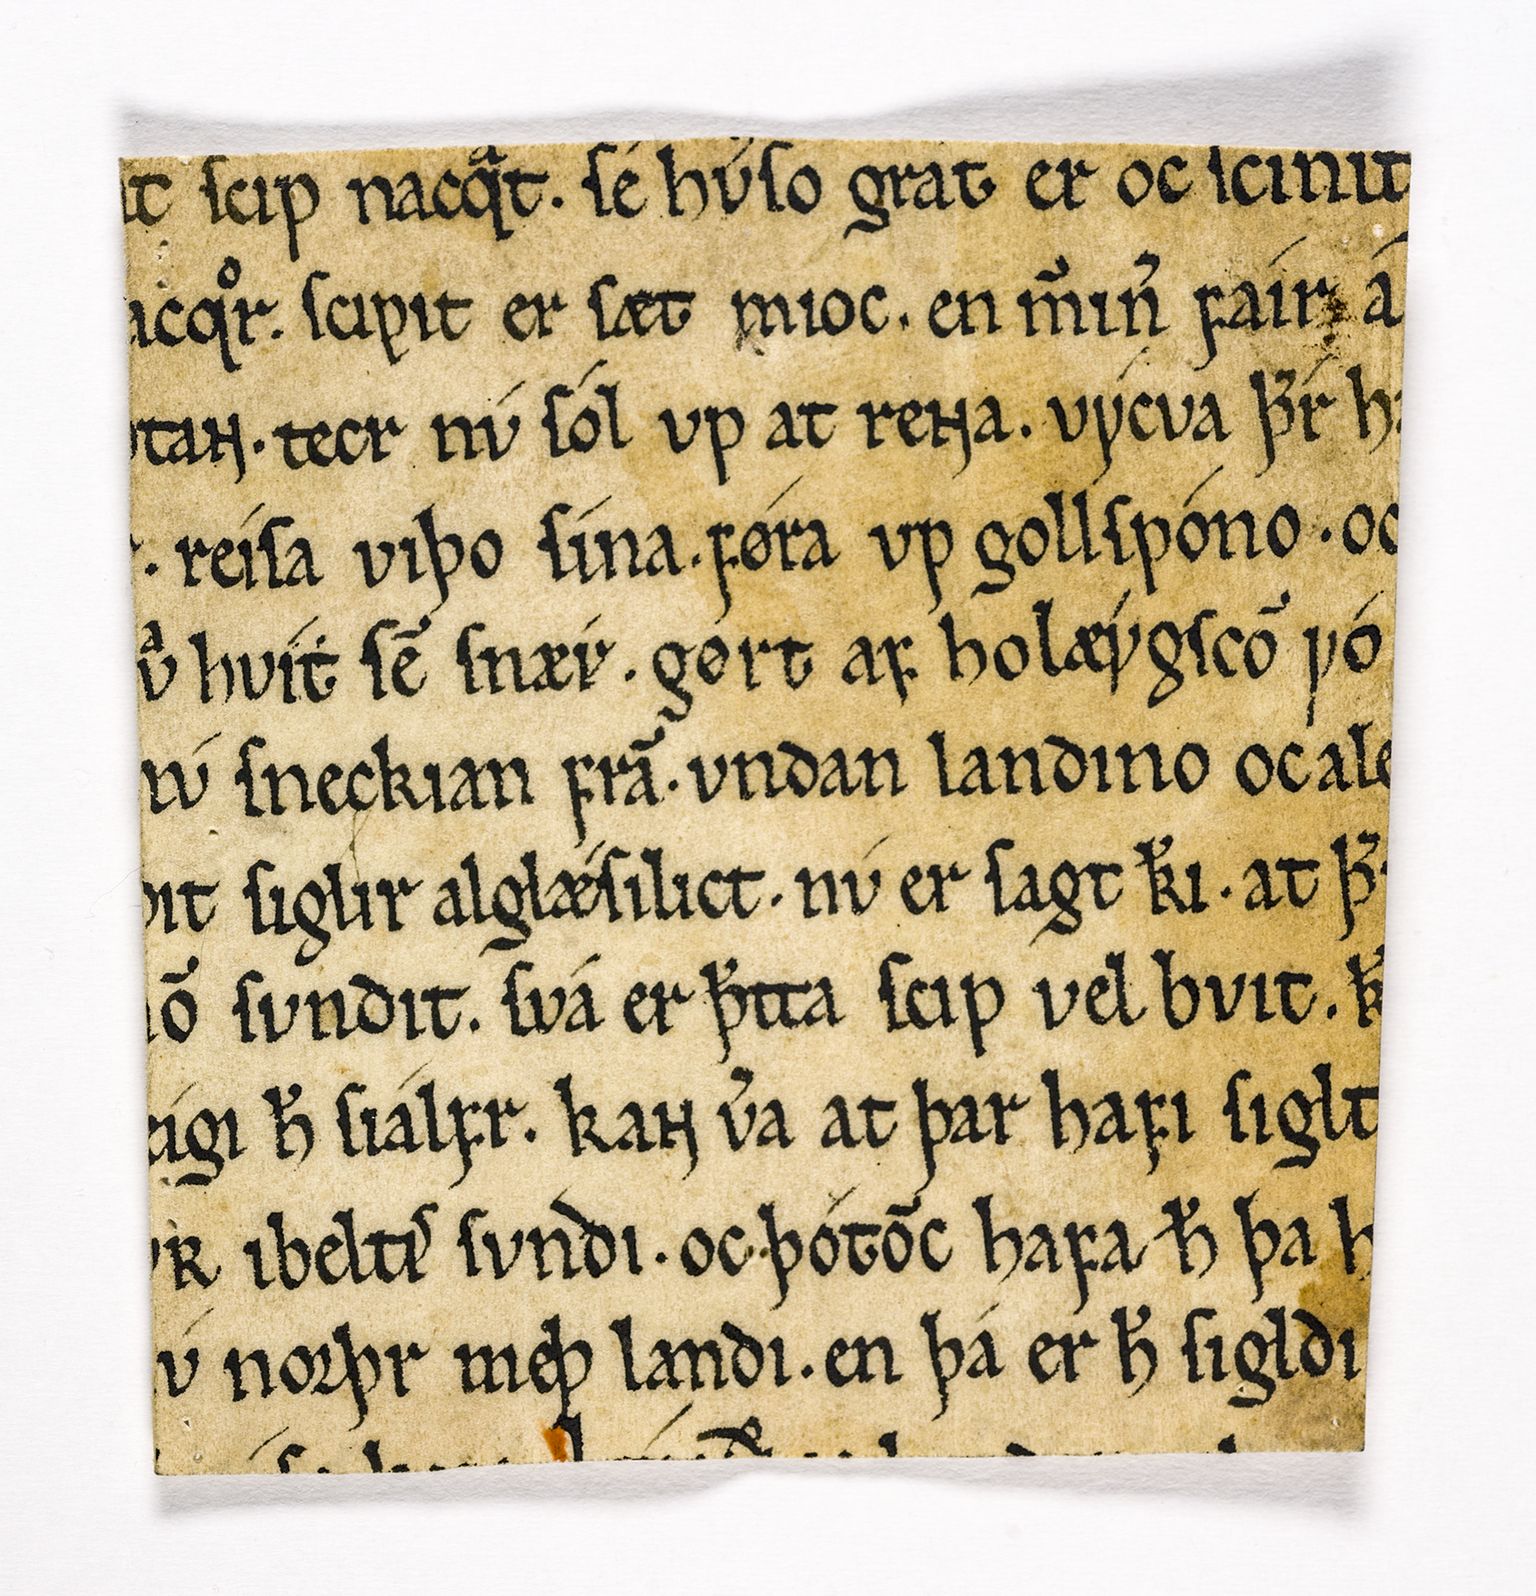 scip nacqͣt. sé hv̓so grat er oc scinit
acqͦr. scipit er sæt mioc. en m̄in̄ fáir
taɴ. tecr nv́ sól vp at reɴa. výcva þr̄
. réisa viþo sína. fǿra vp gollspóno. oc
hvítt sē snǽr. gǿrt af holǽýgscō
nv́ sneckian frā. vndan landino oc
it siglir alglǽsilict. nv́ er sagt k̄i. at
ō svndit. svá er þ̄tta scip vel bvit.
eigi h̄ siálfr. kaɴ v̓a at þar hafi siglt
ibeltꝭ svndi. oc þótōc hafa h̄ þa
v́ norþr meþ landi. en þá er h̄ sigldi